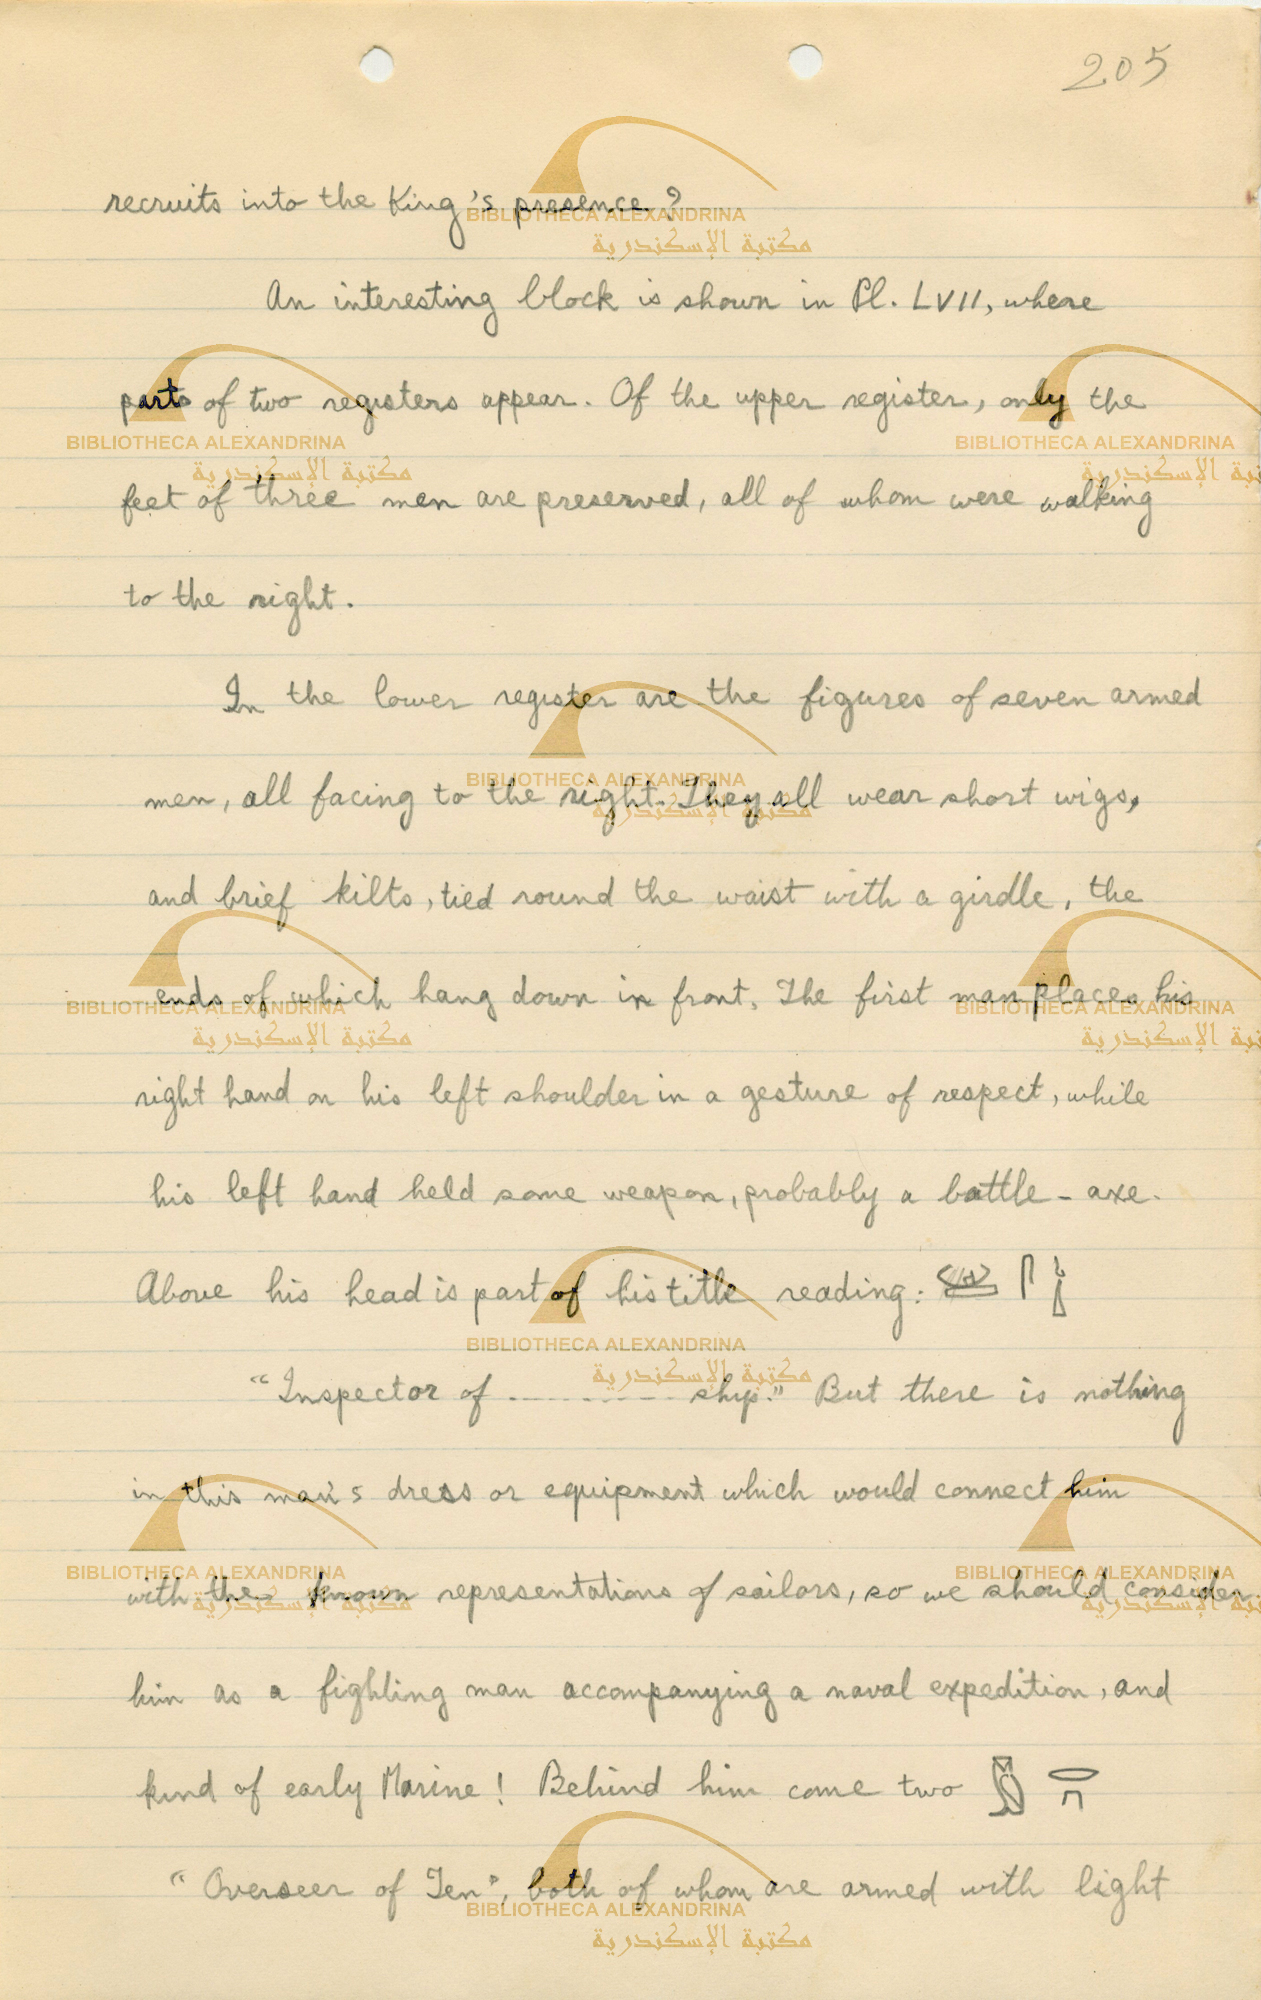 205
recruits into the King's presence?
An interesting block is shown in Pl. LVII, where
parts of two registers appear. Of the upper register, only the
feet of three men are preserved, all of whom were walking
to the right.
In the lower register are the figures of seven armed
men, all facing to the right. They all wear short wigs,
and brief kilts, tied round the waist with a girdle, the
ends of which hang down in front. The first man places his
right hand on his left shoulder in a gesture of respect, while
his left hand held some weapon, probably a battle-axe.
Above his head is part of his title reading:
"Inspector of --------- ship." But there is nothing
in this man's dress or equipment which would connect him
with the known representations of sailors, so we should consider
him as a fighting man accompanying a naval expedition, and
kind of early Marine! Behind him come two
"Overseer of Ten", both of whom are armed with light
BIBLIOTHECA ALEXANDRINA
مكتبة الإسكندرية